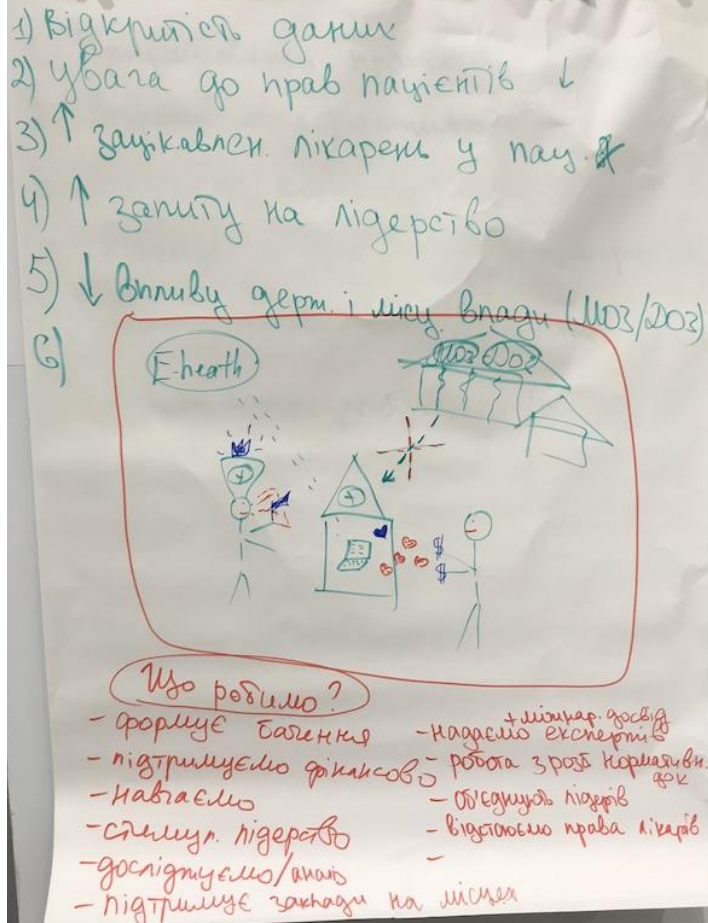 1) Відкритість даних
2) Увага до прав пацієнтів ↓
3) ↑ зацікавлен. лікарень у пац.
4) ↑ запиту на лідерство
5) ↓ впливу держ. і місц. влади (МОЗ/ДОЗ)
6)
E-heath
МОЗ ДОЗ
$
$
Що робимо?
- формує бачення
- підтримуємо фінансово
- навчаємо
- стимул. лідерство
- досліджуємо/аналіз
- підтримує заклади на місцях
+ міжнар. досвід
- надаємо експертів
- робота з розб нормативн.
док
- об'єднують лідерів
- відстоюємо права лікарів
-